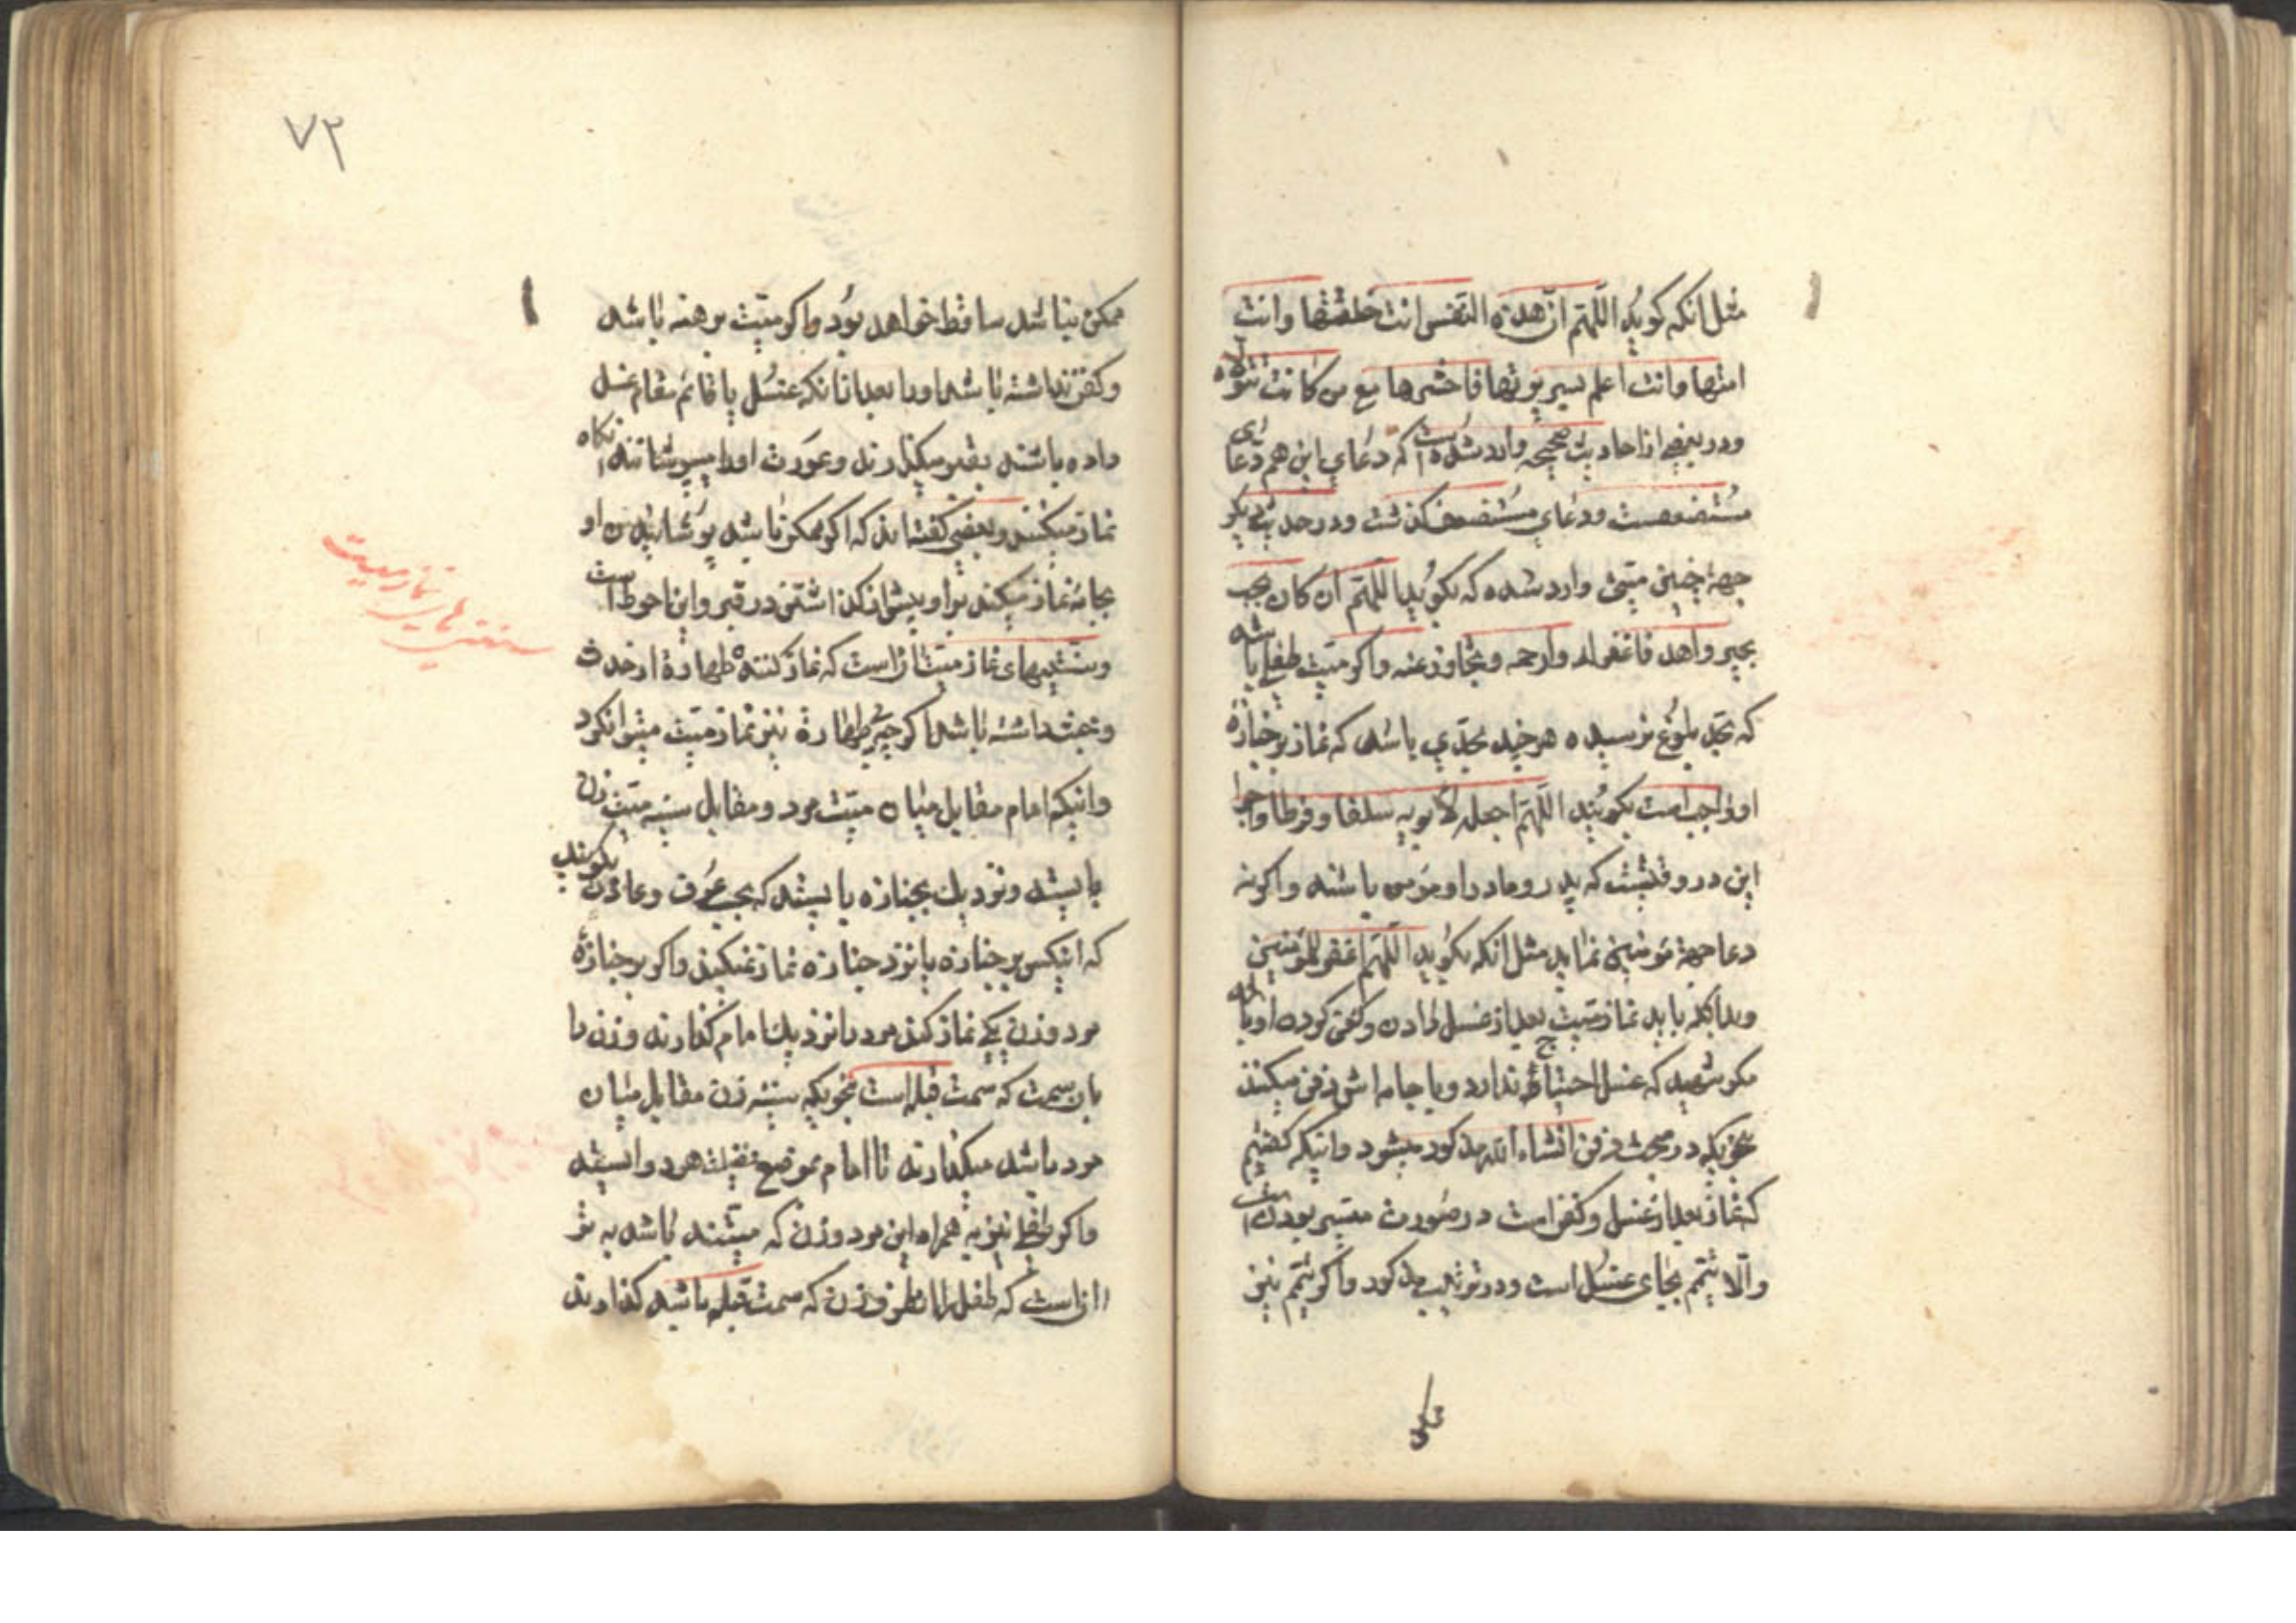 مثل انکه کوید اللهم ان هذه النفس انت خلقتها وانت
امتها وانت اعلم بسریرتها فاحشرها مع من کانت تتولاه
ودر بعضی از احادیث صحیحه وارد شده است که دعای این هم دعای
مستضعفست ودعای مستضعف گذشت ودر حدیث دیگر
جهة چنین میتی وارد شده که بکوید اللهم ان کان یحب
الخیر واهله فاغفر له وارحمه وتجاوز عنه واکر میت طفلی باشد
که بحد بلوغ نرسیده هر چند بحدی باشد که نماز بر جنازه
او واجب است بکویند اللهم اجعله لابویه سلفا وفرطا واجرا
این در وقتیست که پدر و مادر او مؤمن باشند واکر نه
دعا جهة مؤمنین نماید مثل انکه بکوید اللهم اغفر للمؤمنین
وبدانکه باید نماز میت بعد از غسل دادن وکفن کردن او باشد
مکر شهید که غسل احتیاج ندارد وبا جامه اش دفن میکنند
بنحویکه در مبحث دفن انشاء الله مذکور میشود واینکه کفتیم
که نماز بعد از غسل وکفن است در صورت میسر بودن است
والا تیمم بجای غسل است ودر ترتیب مذکور واکر تیمم نیز
ممکن
۷۲
ممکن نباشد ساقط خواهد بود واکر میت برهنه باشد
وکفن نداشته باشد اورا بعد از انکه غسل یا قائم مقام غسل
داده باشند بقبر میکذارند وعورت اورا میپوشانند انکاه
نماز میکنند وبعضی کفته اند که اکر ممکن باشد پوشانیدن او
بجامه نماز میکنند بر او پیش از کذاشتن در قبر واین احوط است
وسنتیهای نماز میت آنست که نماز کننده طهارة از حدث
وخبث داشته باشد اکر چه بی طهارة نیز نماز میت میتوان کرد
واینکه امام مقابل میان میت مرد ومقابل سینه میت زن
بایستد ونزدیک بجنازه بایستد که بحسب عرف وعادت بکویند
که اینکس بر جنازه یا نزد جنازه نماز میکند واکر بر جنازه
مرد وزن یکی نماز کند مرد را نزدیک امام کذارند وزن را
بان سمت که سمت قبله است بنحویکه سینه زن مقابل میان
مرد باشد میکذارند تا امام بموضع فضیلت هر دو ایستد
واکر طفلی نیز به همراه این مرد وزن که میتند باشد بهتر
انست که طفل را از طرف زن که سمت قبله باشد کذارند
سنتیهای نماز میت